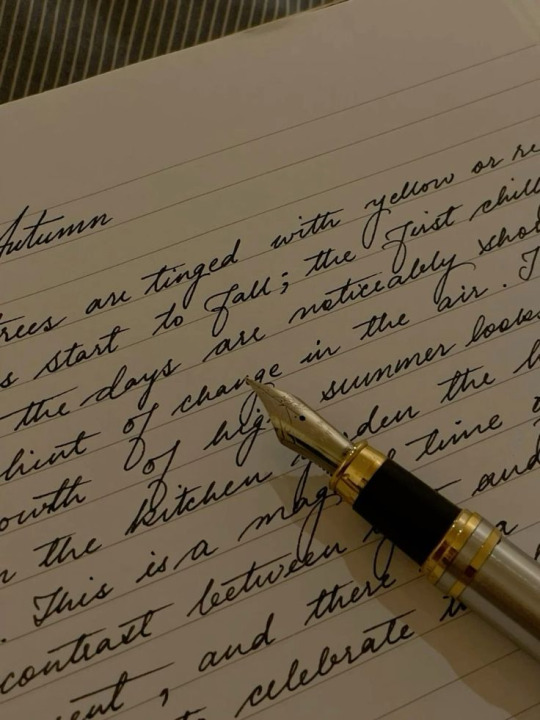 Autumn
trees are tinged with yellow or re
s start to fall; the first chill
the days are noticeably sho
hint of change in the air. T
owth of hig summer looks
n the kitchen den the
. This is a mag time
contrast between and
ent, and there a
celebrate